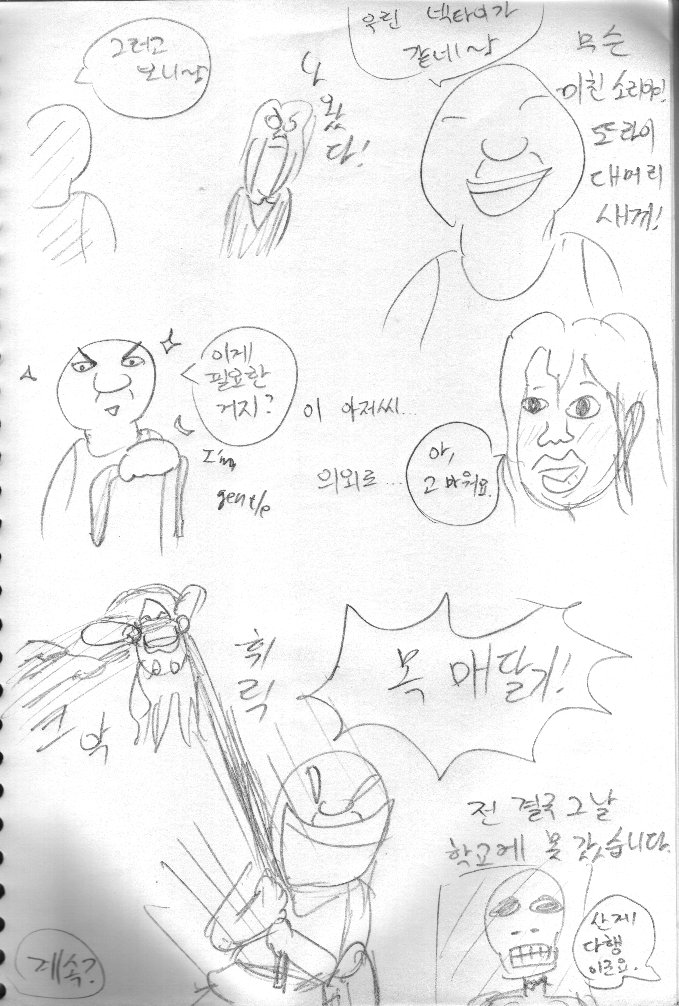 그러고
보니~
나
왔
다!
우린 넥타이가
같네~
무슨
미친 소리야!
또라이
대머리
새끼!
이게
필요한
거지?
I'm
gentle
이 아저씨...
의외로...
아,
고마워요.
휘
릭
크악
목 매달기!
전 결국 그날
학교에 못 갔습니다.
산게
다행
이군요.
계속?